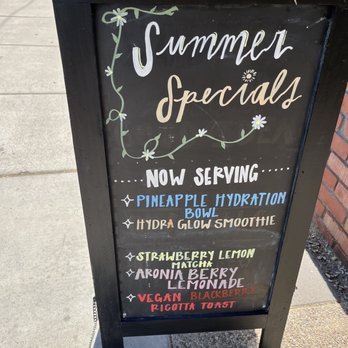 Summer
Specials
NOW SERVING
PINEAPPLE HYDRATION
BOWL
HYDRA GLOW SMOOTHIE
STRAWBERRY LEMON
MATCHA
ARONIA BERRY
LEMONADE
VEGAN BLACKBERRY
RICOTTA TOAST